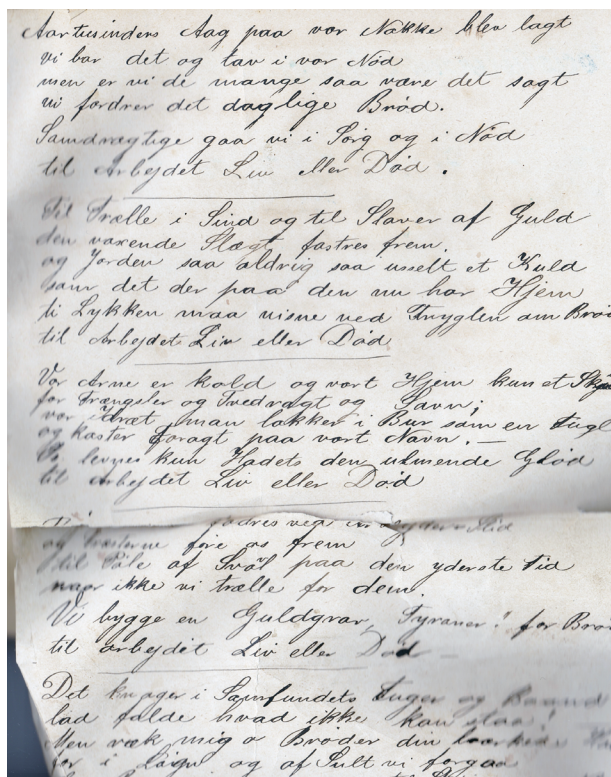 Aartusinders Aag paa vor Nakke blev lagt
vi bar det og tav i vor Nød
men er vi de mange saa være det sagt
vi fordrer det daglige Brød.
Samdrægtige gaa vi i Sorg og i Nød
til Arbejdet Liv eller Død.
Til Trælle i Sind og til Slaver af Guld
den voxende Slægt fostres frem.
og Jorden saa aldrig saa usselt et Kuld
som det der paa den nu har Hjem
ti Lykken maa visne ved Tryglen om Brød
til Arbejdet Liv eller Død
Vor Arne er kold og vort Hjem kun et
for Trængsler og Tvedragt og Savn;
vor man lokker i Bur som en Fugl
og kaster Foragt paa vort Navn. —
levnes kun Hadets den ulmende Glød
til Arbejdet Liv eller Død
fodres ved
og føre os frem
til af paa den yderste Tid
naar ikke vi trælle for dem.
Vi bygge en Guldgrav, Tyraner! for Brød
til arbejdet Liv eller Død —
Det knager i Samfundets Fuger og Baand
lad falde hvad ikke kan staa!
Men ræk mig o Broder din
for i og af Sult vi forgaa